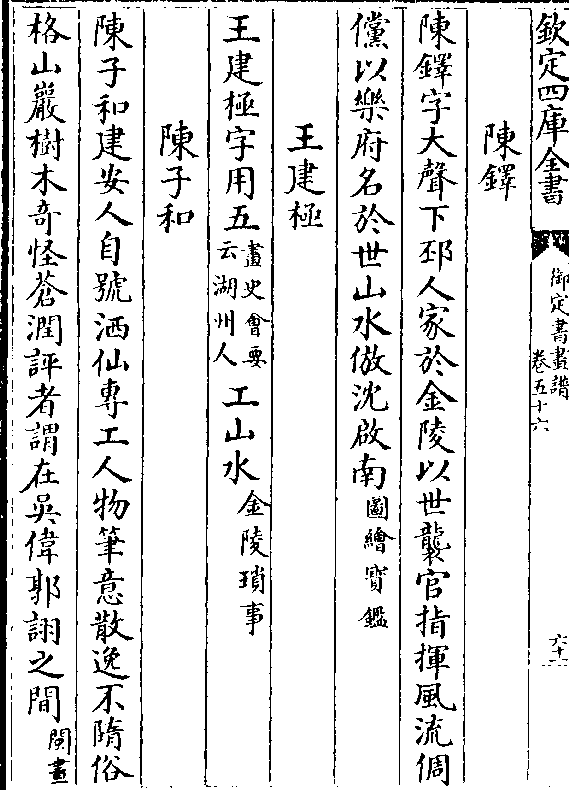 欽定四庫全書
御定書畫譜
卷五十六
六十一
陳鐸
陳鐸字大聲下邳人家於金陵以世襲官指揮風流倜
儻以樂府名於世山水倣沈啟南圖繪寶鑑
王建極
王建極字用五畫史會要云湖州人工山水金陵瑣事
陳子和
陳子和建安人自號洒仙專工人物筆意散逸不隋俗
格山巖樹木奇怪蒼潤評者謂在吳偉郭詡之間閩畫